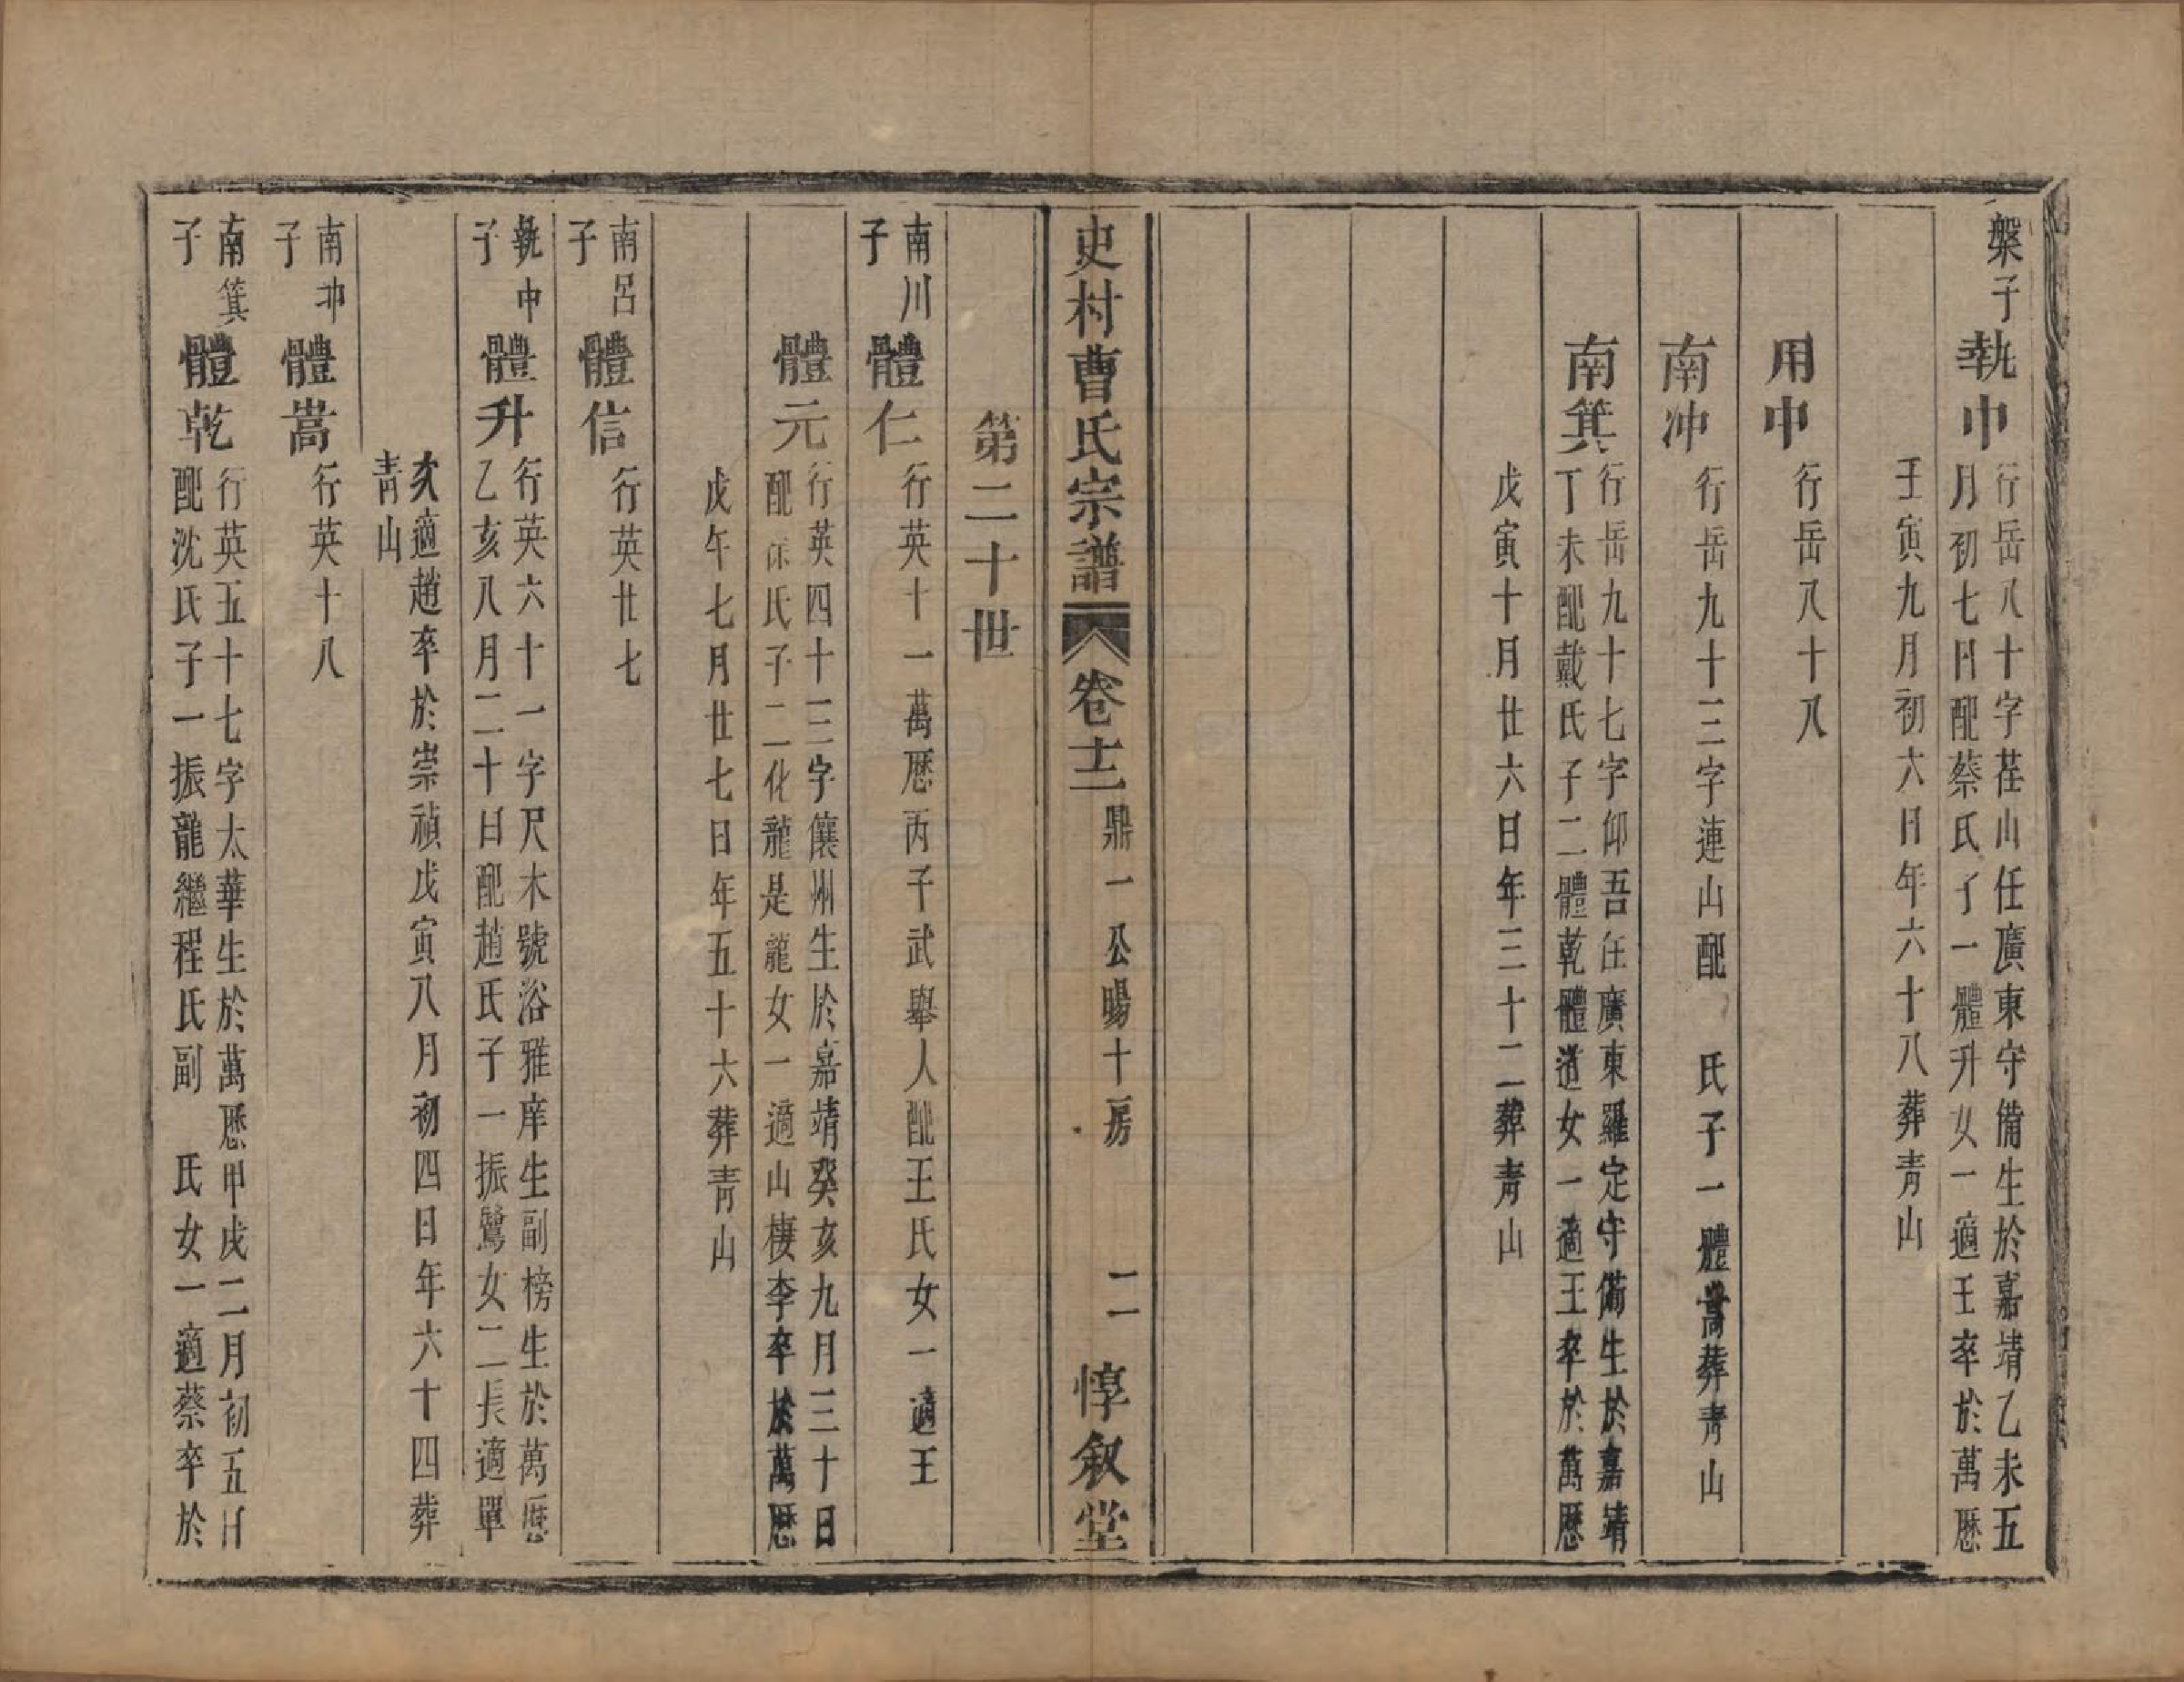 槃子
執中
行岳八十字荏山任廣東守備生於嘉靖乙未五
月初七日配蔡氏子一體升女一適王卒於萬歷
壬寅九月初六日年六十八葬青山
用中
行岳八十八
南冲
行岳九十三字連山配 氏子一體嵩葬青山
南箕
行岳九十七字仰吾任廣東羅定守備生於嘉靖
丁未配戴氏子二體乾體道女一適王卒於萬歷
戊寅十月廿六日年三十二葬青山
史村曹氏宗譜 卷十二 鼎一公暘十房 二 惇敘堂
第二十世
南川
子
體仁
行英十一萬歷丙子武舉人配王氏女一適王
體元
行英四十三字儴州生於嘉靖癸亥九月三十日
配 氏子二化龍是龍女一適山棲李卒於萬歷
戊午七月廿七日年五十六葬青山
南呂
子
體信
行英廿七
執中
子
體升
行英六十一字尺木號浴雅庠生副榜生於萬歷
乙亥八月二十日配趙氏子一振鷺女二長適單
次適趙卒於崇禎戊寅八月初四日年六十四葬
青山
南冲
子
體嵩
行英十八
南箕
子
體乾
行英五十七字太華生於萬歷甲戌二月初五日
配沈氏子一振龍繼程氏副 氏女一適蔡卒於